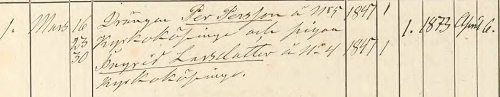 1. Mars 16 Drängen Per Persson å No 5 1847 1
23 Kyrkoköpinge och pigan 1. 1873 April 6.
30 Ingrid Larsdatter å No 4 1847 1
Kyrkoköpinge.